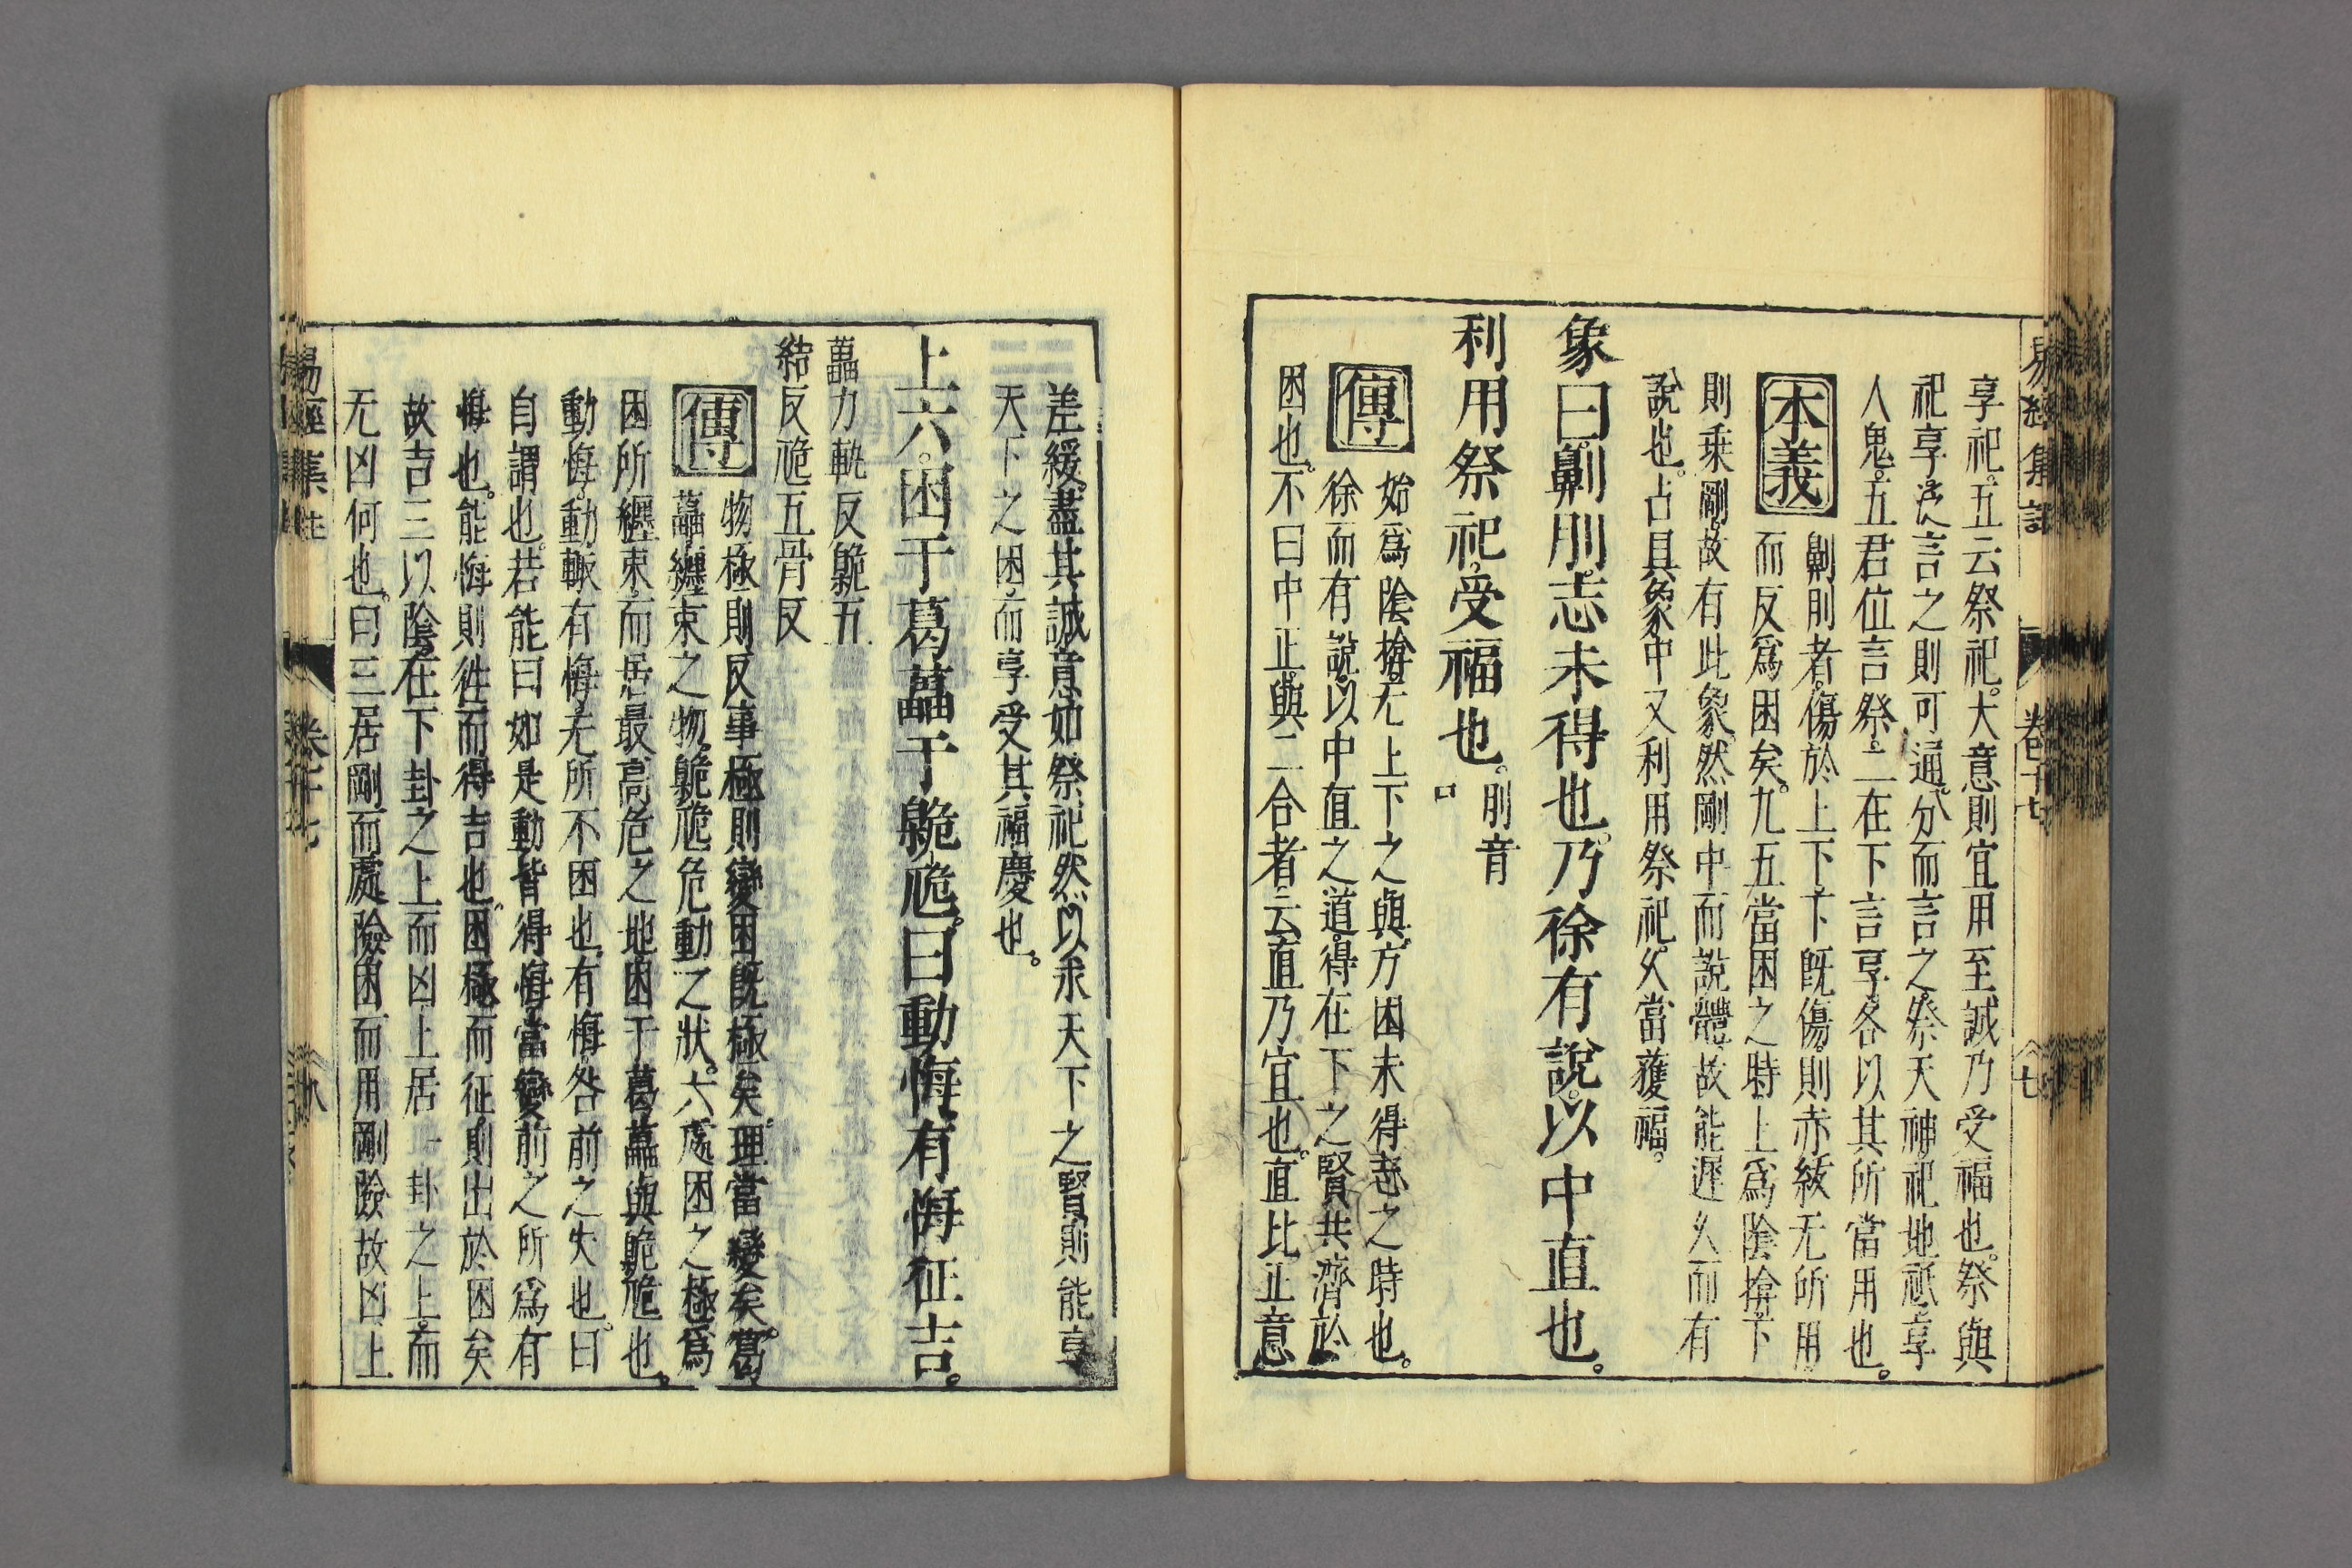 易經集註 卷十七 七
享祀。五云祭祀。大意則宜用至誠乃受福也。祭與
祀享泛言之則可通。分而言之祭天神祀地祇。享
人鬼。五君位言祭。二在下言享。各以其所當用也。
本義 劓刖者。傷於上下。下既傷。則赤紱无所用
而反爲困矣。九五當困之時。上爲陰揜。下
則乗剛。故有此象。然剛中而說體。故能遲久而有
說也。占具象中。又利用祭祀。久當獲福。
象曰。劓刖。志未得也。乃徐有說。以中直也。
利用祭祀。受福也。刖音
月
傳 始爲陰揜。无上下之與。方困未得志之時也。
徐而有說。以中直之道。得在下之賢共濟於
困也。不曰中正。與二合者。云直乃宜也。直比正意
差緩。盡其誠意。如祭祀然。以求天下之賢。則能亨
天下之困。而享受其福慶也。
上六。困于葛藟。于臲卼。曰動悔有悔征吉。
藟力軌反臲五
結反卼五骨反
傳 物極則反。事極則變。困既極矣。理當變矣。葛
藟纏束之物。臲卼危動之狀。六處困之極。爲
困所纏束。而居最高危之地。困于葛藟與臲卼也。
動悔。動輒有悔。无所不困也。有悔。咎前之失也。曰
自謂也。若能曰如是動皆得悔。當變前之所爲有
悔也。能悔則徃而得吉也。困極而征。則出於困矣
故吉。三以陰在下卦之上而凶。上居一卦之上。而
无凶何也。曰三居剛而處險。困而用剛險故凶。上
易經集註 卷十七 八